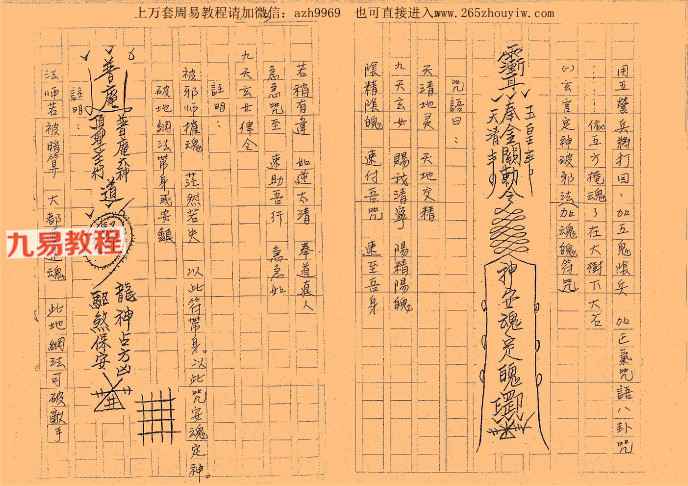 上万套周易教程请加微信：azh9969 也可直接进入www.265zhouyiw.com
因五營兵將打回，加五鬼陰兵 加正氣咒語八卦咒
五方掩魂了在大樹下大石
以玄宮定神被邪法加魂魄符咒
玉皇
靈 奉金闕勅令
天清
神安魂定魄
咒語曰：
天清地灵 天地交精
九天玄女 賜我清寧 陽精陽魄
陰精陰魄 速付吾咒 速至吾身
若稍有違 如違太清 奉道真人
急急咒至 速助吾行 急急如
九天玄女律令
註明：
被邪师摧魂 茫然若失 以此符帶身。以此咒安魂定神。
破地綱法帶身或安鎮
普庵
普庵
道
龍神占方凶
驅煞保安
註明：
法师若被暗算 大都 魂 此地綱法可破敵手
九易教程